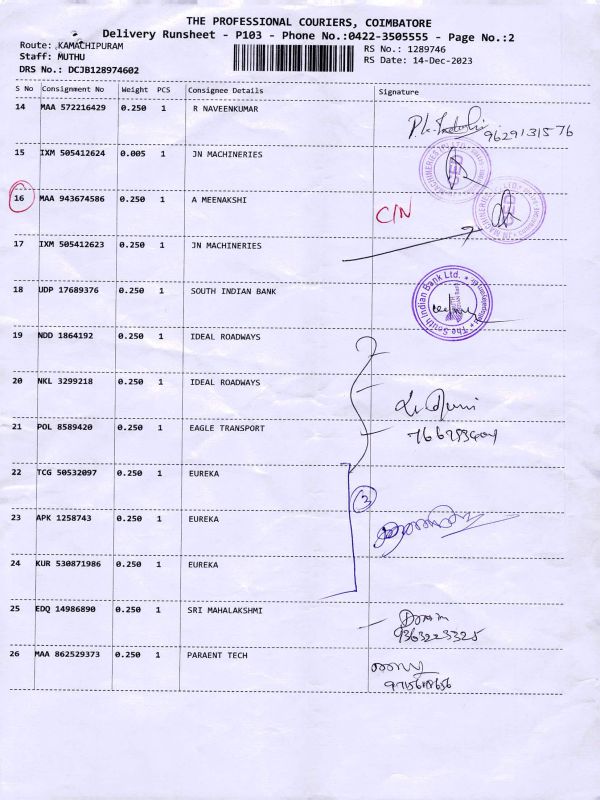 THE PROFESSIONAL COURIERS, COIMBATORE
Delivery Runsheet - P103 - Phone No.:0422-3505555 - Page No.:2
Route: KAMACHIPURAM
RS No.: 1289746
Staff: MUTHU
RS Date: 14-Dec-2023
DRS No.: DCJB128974602
S No Consignment No Weight PCS Consignee Details Signature
14 MAA 572216429 0.250 1 R NAVEENKUMAR
9629131576
15 IXM 505412624 0.005 1 JN MACHINERIES
16 MAA 943674586 0.250 1 A MEENAKSHI C/N
17 IXM 505412623 0.250 1 JN MACHINERIES
18 UDP 17689376 0.250 1 SOUTH INDIAN BANK
The South Indian Bank Ltd.
19 NDD 1864192 0.250 1 IDEAL ROADWAYS
20 NKL 3299218 0.250 1 IDEAL ROADWAYS
21 POL 8589420 0.250 1 EAGLE TRANSPORT
22 TCG 50532097 0.250 1 EUREKA
3
23 APK 1258743 0.250 1 EUREKA
24 KUR 530871986 0.250 1 EUREKA
25 EDQ 14986890 0.250 1 SRI MAHALAKSHMI
9363223325
26 MAA 862529373 0.250 1 PARAENT TECH